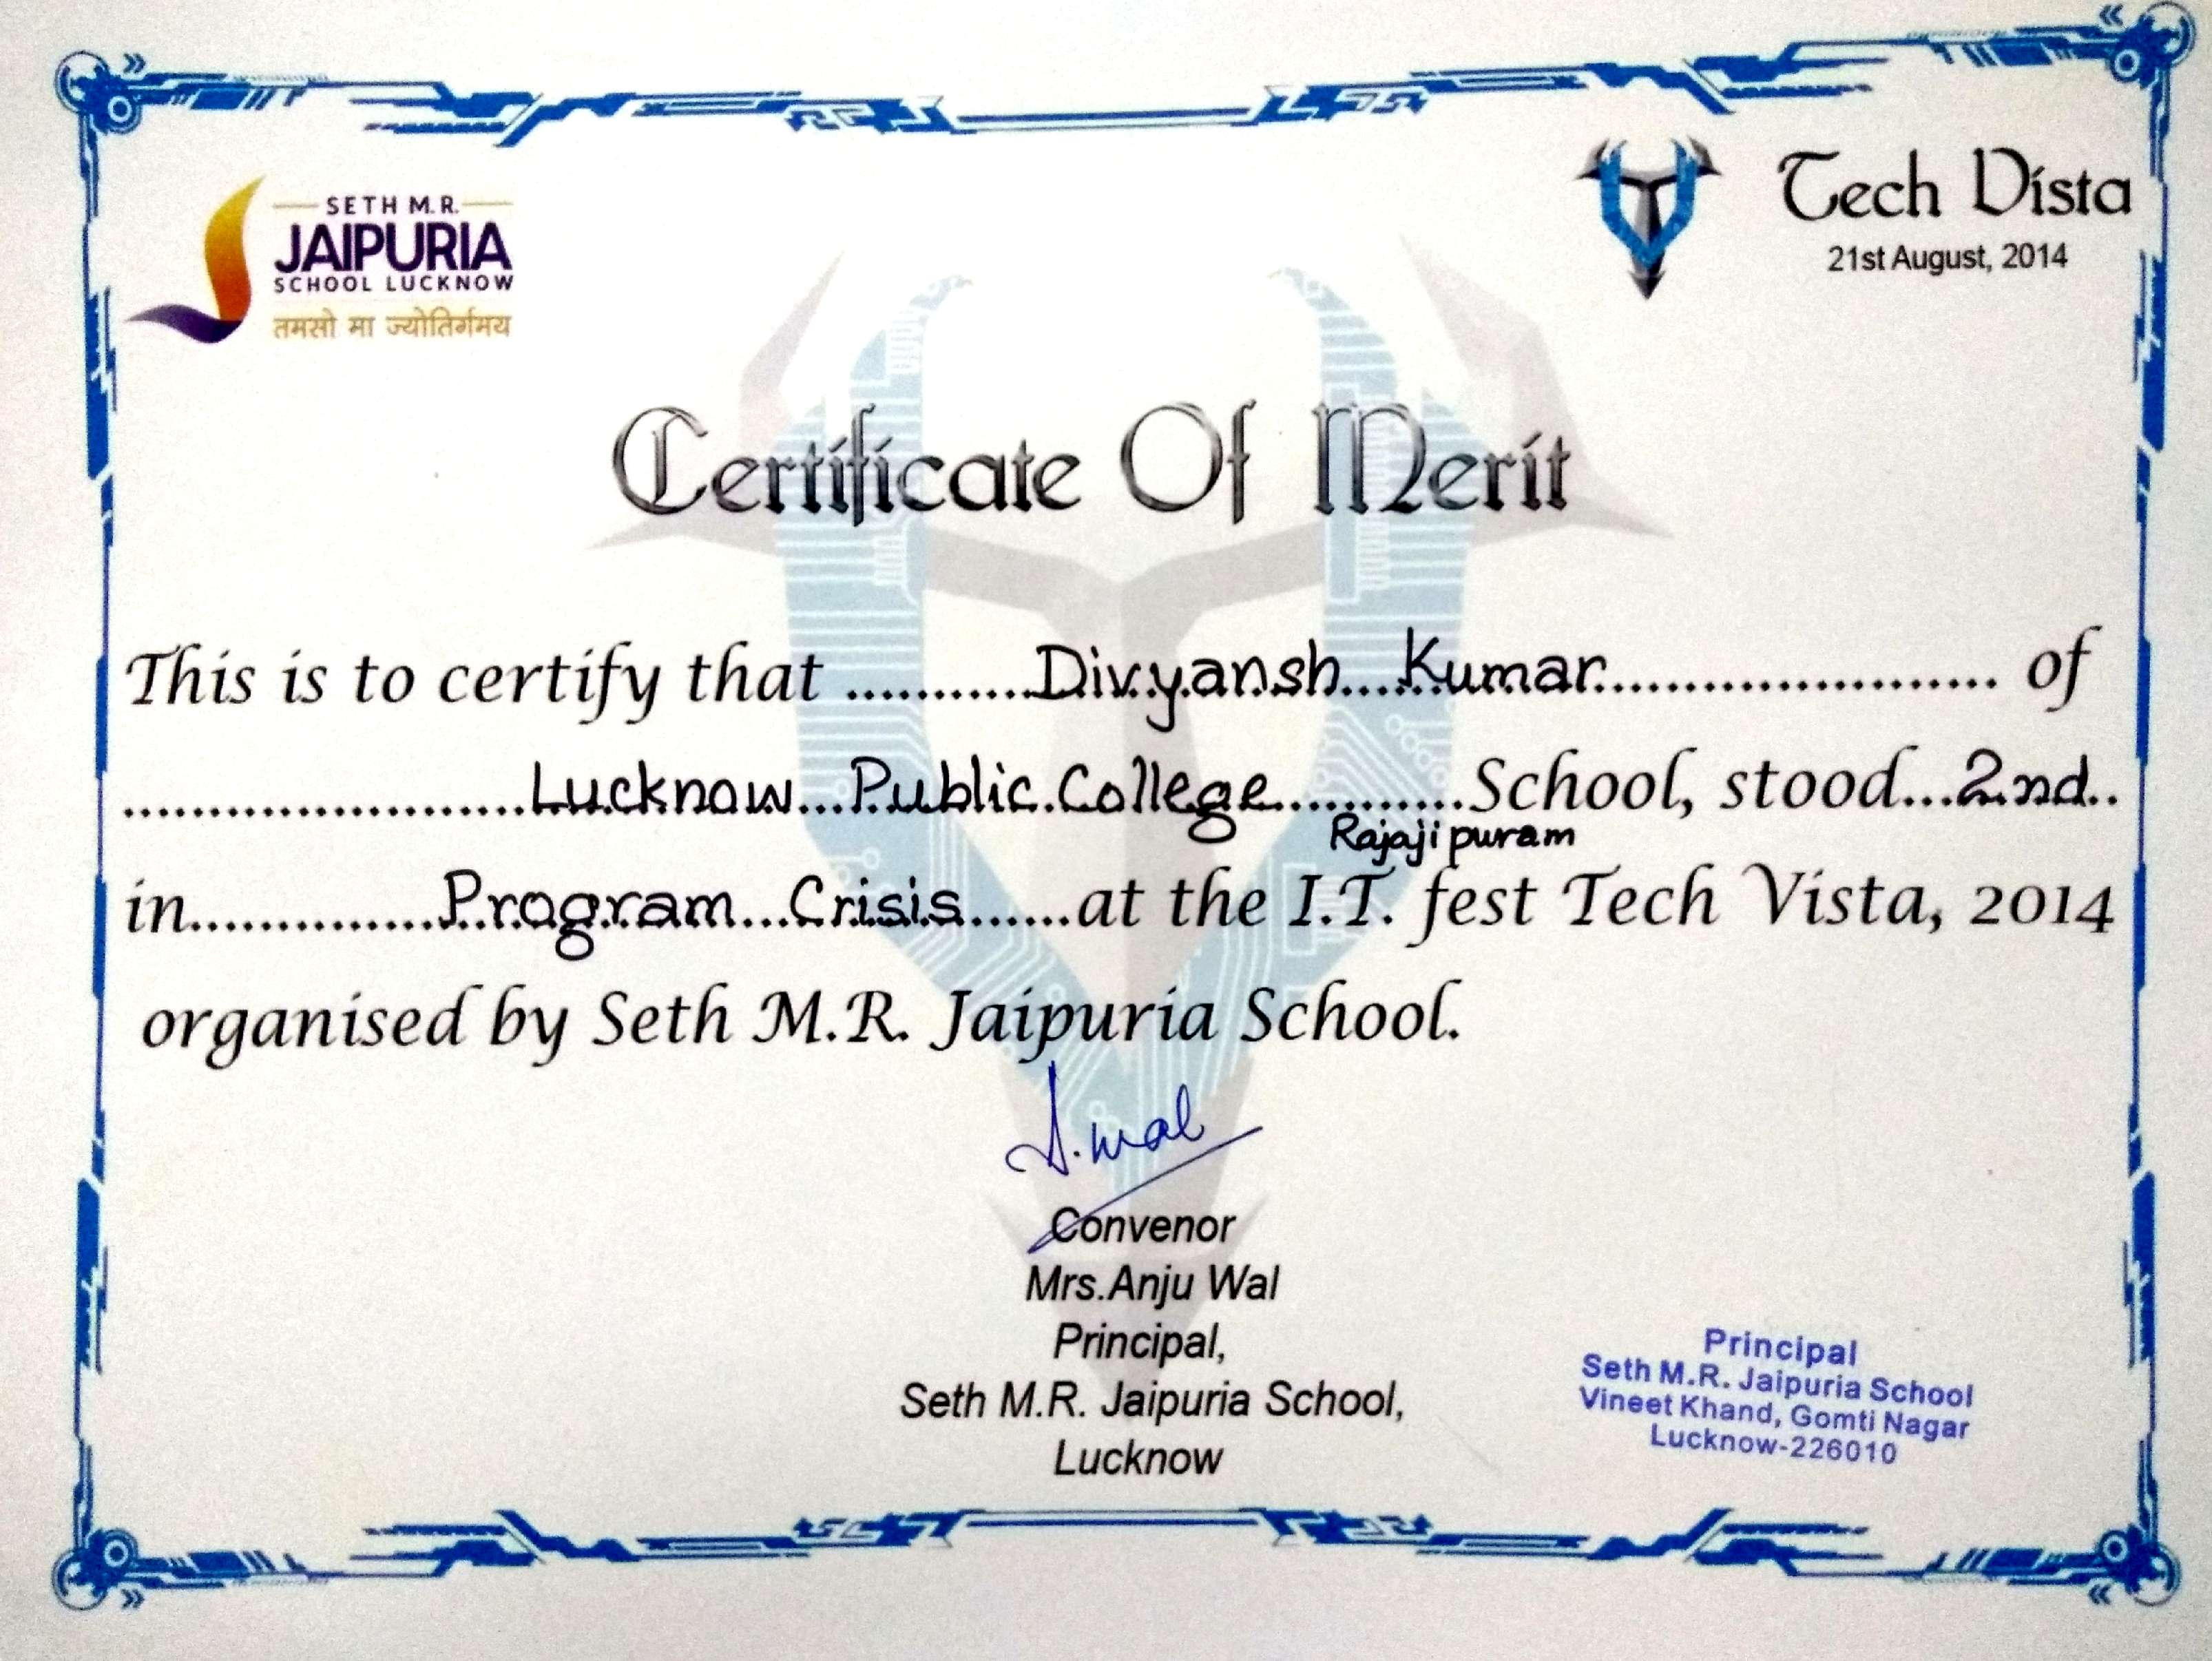 SETH M.R.
JAIPURIA
SCHOOL LUCKNOW
तमसो मा ज्योतिर्गमय
Tech Vista
21st August, 2014
Certificate Of Merit
This is to certify that ...........Divyansh....Kumar........................ of
........................Lucknow...Public.College...........School, stood...2nd..
Rajajipuram
in...............Program...Crisis......at the I.T. fest Tech Vista, 2014
organised by Seth M.R. Jaipuria School.
A.Wal
Convenor
Mrs.Anju Wal
Principal,
Seth M.R. Jaipuria School,
Lucknow
Principal
Seth M.R. Jaipuria School
Vineet Khand, Gomti Nagar
Lucknow-226010